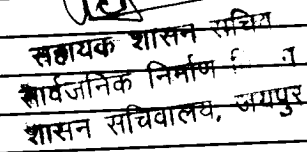 सहायक शासन सचिव
सार्वजनिक निर्माण
शासन सचिवालय, जयपुर